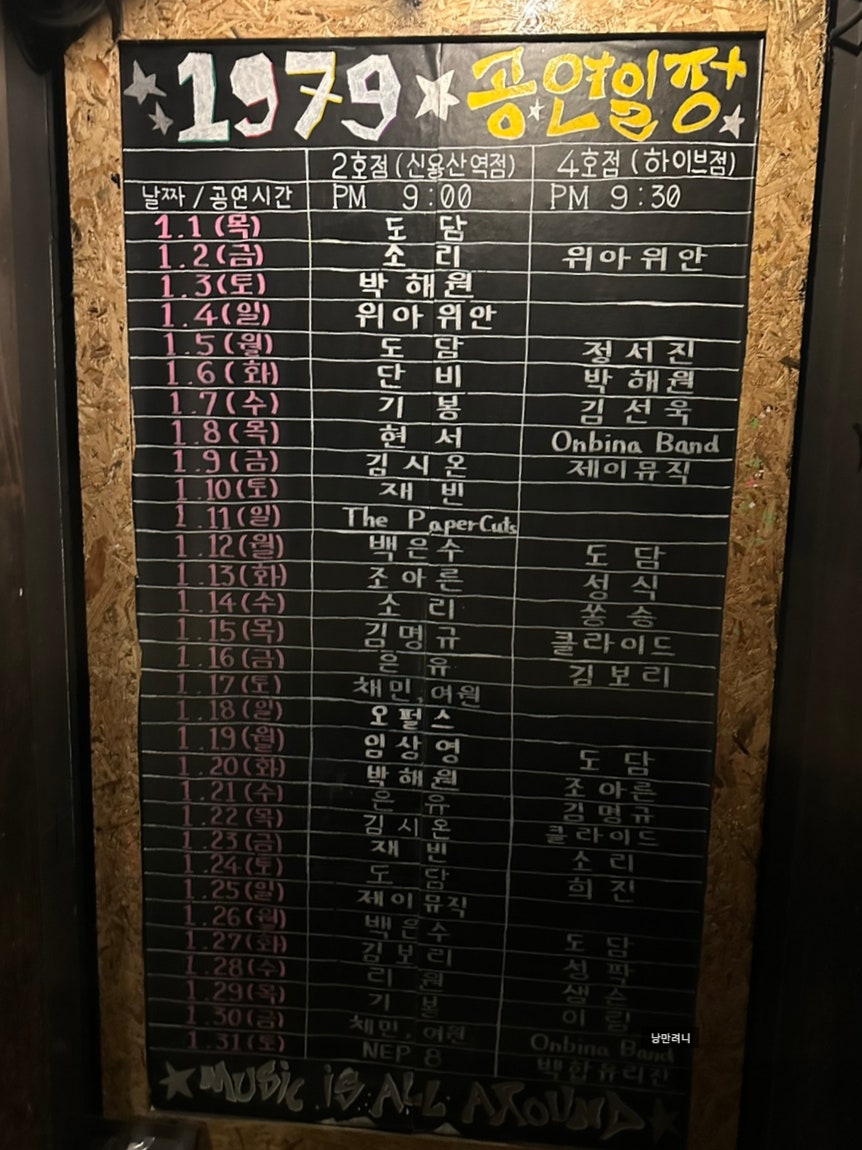 1979 공연일정
2호점(신용산역점) 4호점(하이브점)
날짜/공연시간 PM 9:00 PM 9:30
1.1(목) 도담
1.2(금) 소리 위아위안
1.3(토) 박해원
1.4(일) 위아위안
1.5(월) 도담 정서진
1.6(화) 단비 박해원
1.7(수) 기봉 김선욱
1.8(목) 현서 Onbina Band
1.9(금) 김시온 제이뮤직
1.10(토) 재빈
1.11(일) The PaperCuts
1.12(월) 백은수 도담
1.13(화) 조아른 성식
1.14(수) 소리 쏭승
1.15(목) 김명규 클라이드
1.16(금) 은유 김보리
1.17(토) 채민,여원
1.18(일) 오펄스
1.19(월) 임상영 도담
1.20(화) 박해원 조아른
1.21(수) 은유 김명규
1.22(목) 김시온 클라이드
1.23(금) 재빈 소리
1.24(토) 도담 희진
1.25(일) 제이뮤직
1.26(월) 백은수 도담
1.27(화) 김보리
1.28(수) 리원
1.29(목) 기봉
1.30(금) 채민,여원 Onbina Band
1.31(토) NEP 8
MUSIC IS ALL AROUND
낭만려니